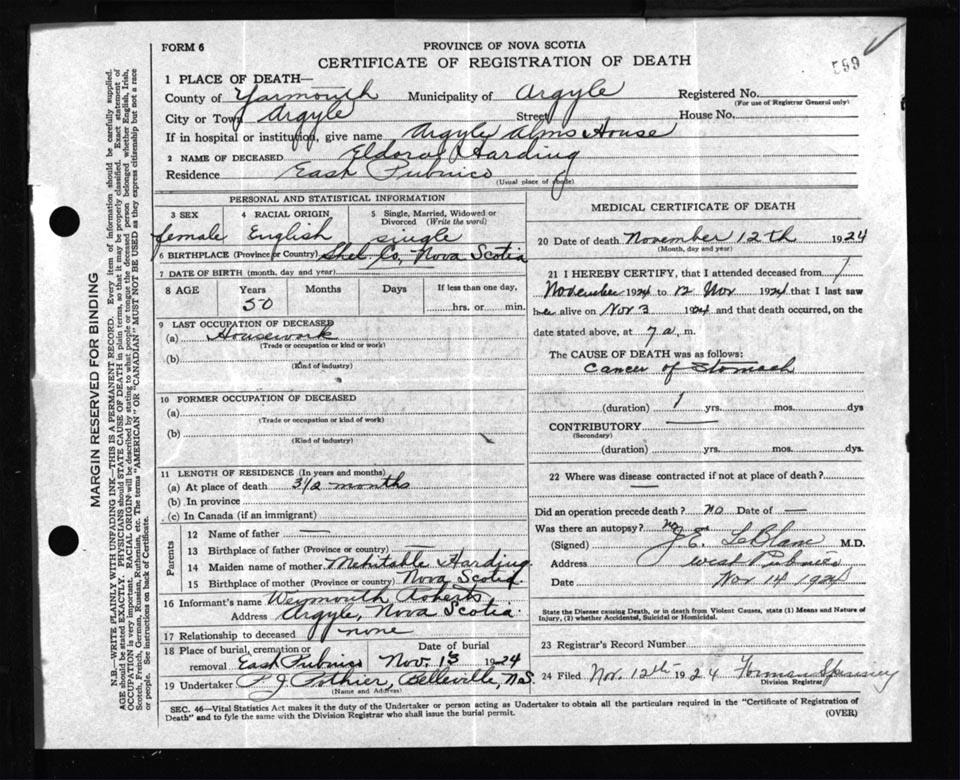 FORM 6
PROVINCE OF NOVA SCOTIA
CERTIFICATE OF REGISTRATION OF DEATH
599
1 PLACE OF DEATH—
County of Yarmouth Municipality of Argyle Registered No.
(For use of Registrar General only)
City or Town Argyle Street House No.
If in hospital or institution, give name Argyle Alms House
2 NAME OF DECEASED Eldora Harding
Residence East Pubnico
(Usual place of abode)
PERSONAL AND STATISTICAL INFORMATION
3 SEX 4 RACIAL ORIGIN 5 Single, Married, Widowed or Divorced (Write the word)
female English single
6 BIRTHPLACE (Province or Country) Shel Co, Nova Scotia
7 DATE OF BIRTH (month, day and year)
8 AGE Years Months Days If less than one day,
50 hrs. or min.
9 LAST OCCUPATION OF DECEASED
(a) Housework
(Trade or occupation or kind or work)
(b)
(Kind of industry)
10 FORMER OCCUPATION OF DECEASED
(a)
(Trade or occupation or kind of work)
(b)
(Kind of industry)
11 LENGTH OF RESIDENCE (In years and months)
(a) At place of death 3½ months
(b) In province
(c) In Canada (if an immigrant)
Parents
12 Name of father —
13 Birthplace of father (Province or country) —
14 Maiden name of mother Mehitable Harding
15 Birthplace of mother (Province or country) Nova Scotia
16 Informant's name Weymouth Roberts
Address Argyle, Nova Scotia
17 Relationship to deceased none
18 Place of burial, cremation or removal East Pubnico Date of burial Nov. 13 1924
19 Undertaker P J Pothier, Belleville, N.S.
(Name and Address)
MEDICAL CERTIFICATE OF DEATH
20 Date of death November 12th 1924
(Month, day and year)
21 I HEREBY CERTIFY, that I attended deceased from 1
November 1924 to 12 Nov 1924 that I last saw
alive on Nov 3 1924 and that death occurred, on the
date stated above, at 7 a. m.
The CAUSE OF DEATH was as follows:
Cancer of Stomach
(duration) 1 yrs. mos. dys
CONTRIBUTORY —
(Secondary)
(duration) yrs. mos. dys
22 Where was disease contracted if not at place of death?
—
Did an operation precede death? no Date of —
Was there an autopsy? no
(Signed) J.E. LeBlanc M.D.
Address West Pubnico
Date Nov 14 1924
State the Disease causing Death, or in death from Violent Causes, state (1) Means and Nature of
Injury, (2) whether Accidental, Suicidal or Homicidal.
23 Registrar's Record Number
24 Filed Nov. 12th 1924 Forman
Division Registrar
SEC. 46—Vital Statistics Act makes it the duty of the Undertaker or person acting as Undertaker to obtain all the particulars required in the "Certificate of Registration of
Death" and to fyle the same with the Division Registrar who shall issue the burial permit.
(OVER)
MARGIN RESERVED FOR BINDING
N.B.—WRITE PLAINLY WITH UNFADING INK—THIS IS A PERMANENT RECORD. Every item of information should be carefully supplied.
AGE should be stated EXACTLY. PHYSICIANS should STATE CAUSE OF DEATH in plain terms, so that it may be properly classified. Exact statement of
OCCUPATION is very important. RACIAL ORIGIN will be described by stating to what people or tongue the deceased person belonged whether English, Irish,
Scotch, French, German, Russian, Ruthenian, etc. The terms "AMERICAN" OR "CANADIAN" MUST NOT BE USED as they express citizenship but not a race
or people. See instructions on back of Certificate.